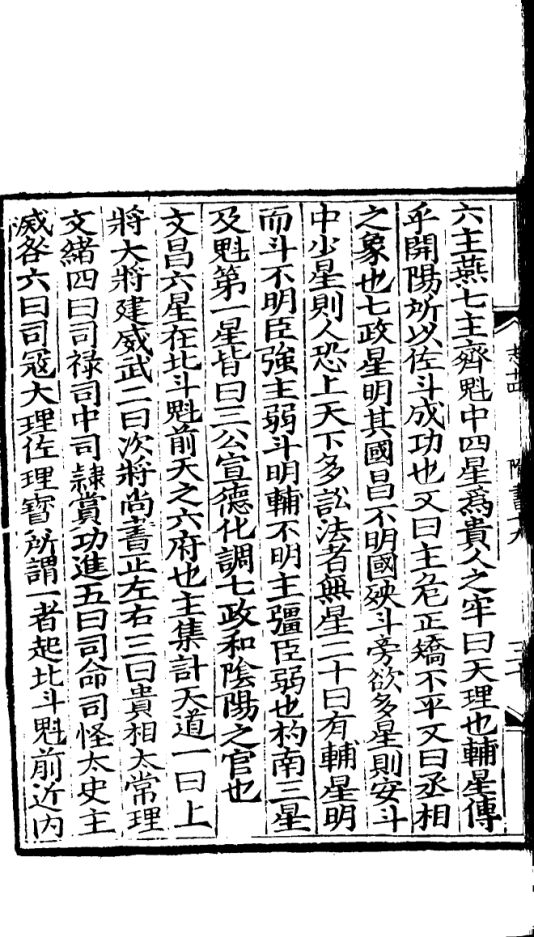 六主燕七主齊魁中四星爲貴人之牢曰天理也輔星傳
乎開陽所以佐斗成功也又曰主危正矯不平又曰丞相
之象也七政星明其國昌不明國殃斗旁欲多星則安斗
中少星則人恐上天下多訟法者無星二十日有輔星明
而斗不明臣強主弱斗明輔不明主彊臣弱也杓南三星
及魁第一星皆曰三公宣德化調七政和陰陽之官也
文昌六星在北斗魁前天之六府也主集計天道一曰上
將大將建威武二曰次將尚書正左右三曰貴相太常理
文緒四曰司禄司中司隸賞功進五曰司命司怪太史主
滅咎六曰司寇大理佐理寳所謂一者起北斗魁前近内
志十四
隋書十九